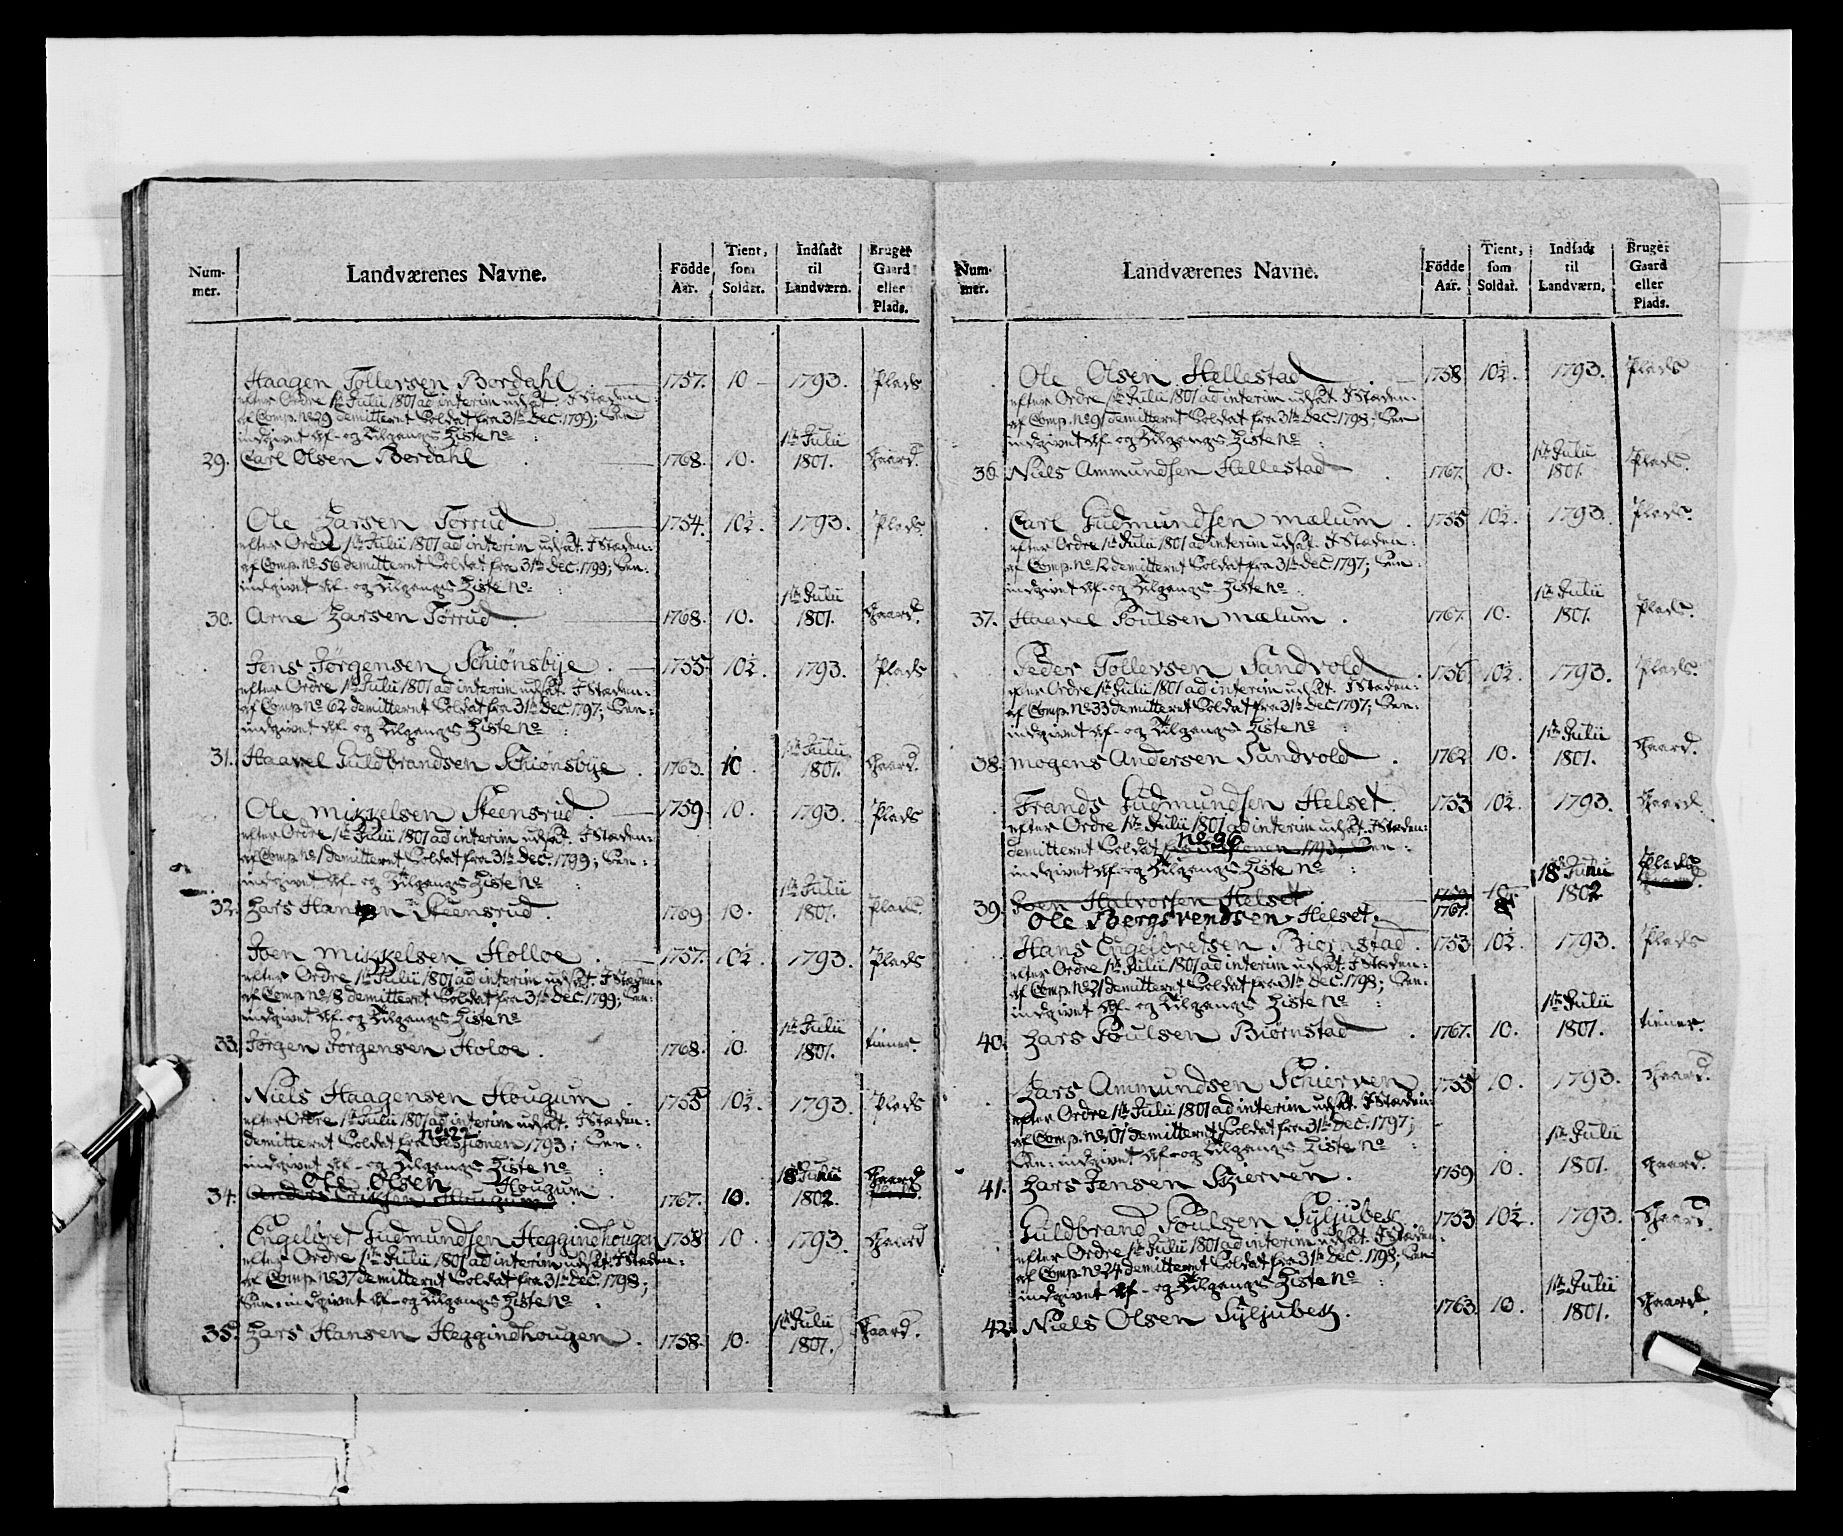 Num- mer. Landværenes Navne. Födde Aar. Tient, som Soldat. Indsadt til Landværn. Bruger Gaard eller Plads.
Haagen Tollersen Bordahl 1757. 10 1793. Plads
efter Ordre 1ste Julii 1801 ad interim udsat. I Stæden:
af Comp. No 29 demitteret Soldat fra 31te Dec. 1799; Sen
indgivet Af- og Tilgangs Liste No
29. Carl Olsen Berdahl 1768. 10. 1ste Julii 1801. Gaard.
Ole Larsen Torrud 1754. 10½. 1793. Plads.
efter Ordre 1ste Julii 1801 ad interim udsat. I Stæden:
af Comp. No 56 demitteret Soldat fra 31te Dec. 1799; Sen:
indgivet Af- og Tilgangs Liste No
30. Arne Larsen Torrud 1768. 10. 1ste Julii 1801. Gaard.
Jens Jörgensen Schiönsbye 1755. 10½. 1793. Plads
efter Ordre 1ste Julii 1801 ad interim udsat. I Stæden:
af Comp. No 62 demitteret Soldat fra 31te Dec. 1797; Sen:
indgivet Af- og Tilgangs Liste No
31. Haavel Guldbrandsen Schiönsbye 1763. 10. 1ste Julii 1801. Gaard.
Ole Mikkelsen Steensrud 1759. 10. 1793. Plads
efter Ordre 1ste Julii 1801 ad interim udsat. I Stæden:
af Comp. No 1 demitteret Soldat fra 31te Dec. 1799; Sen:
indgivet Af- og Tilgangs Liste No
32. Lars Hansen Steensrud. 1769. 10. 1ste Julii 1801. Plads.
Joen Mikkelsen Holloe 1757. 10½. 1793. Plads
efter Ordre 1ste Julii 1801 ad interim udsat. I Stæden:
af Comp. No 18 demitteret Soldat fra 31te Dec. 1799; Sen:
indgivet Af- og Tilgangs Liste No
33. Jörgen Jörgensen Holoe. 1768. 10. 1ste Julii 1801. tiener.
Niels Haagensen Hougum 1755 10½. 1793. Plads
efter Ordre 1ste Julii 1801 ad interim udsat. I Stæden:
No 122
demitteret Soldat fra Sessionen 1793; Sen:
indgivet Af- og Tilgangs Liste No
Ole Olsen Hougum 18 Junii Gaard
34. Anders Eriksen Hougum 1767. 10. 1802 Plads.
Engelbret Gudmundsen Heggindhougen 1758 10. 1793. Gaard
efter Ordre 1ste Julii 1801 ad interim udsat. I Stæden:
af Comp. No 37 demitteret Soldat fra 31te Dec. 1798;
Sen: indgivet Af- og Tilgangs Liste No
35. Lars Hansen Heggindhougen. 1758. 10. 1ste Julii 1801. Gaard.
Num- mer. Landværenes Navne. Födde Aar. Tient, som Soldat. Indsadt til Landværn. Bruger Gaard eller Plads.
Ole Olsen Hellestad 1758 10½. 1793. Plads
efter Ordre 1ste Julii 1801 ad interim udsat. I Stæden:
af Comp. No 91 demitteret Soldat fra 31te Dec. 1798; Sen
indgivet Af- og Tilgangs Liste No
36. Niels Ammundsen Hellestad 1767. 10. 1ste Julii 1801. Plads.
Carl Gudmundsen Mælum 1755 10½. 1793. Plads.
efter Ordre 1ste Julii 1801 ad interim udsat. I Stæden:
af Comp. No 12 demitteret Soldat fra 31te Dec. 1797; Sen:
indgivet Af- og Tilgangs Liste No
37. Haavel Poulsen Mælum. 1767. 10. 1ste Julii 1801. Plads.
Peder Tollevsen Sandvold 1756 10½. 1793. Plads.
efter Ordre 1ste Julii 1801 ad interim udsat. I Stæden:
af Comp. No 33 demitteret Soldat fra 31te Dec. 1797; Sen:
indgivet Af- og Tilgangs Liste No
38. Mogens Andersen Sandvold. 1762 10. 1ste Julii 1801. Gaard.
Frands Gudmundsen Helset. 1753 10½. 1793. Gaard.
efter Ordre 1ste Julii 1801 ad interim udsat. I Stæden:
No 96
demitteret Soldat fra Sessionen 1793; Sen:
indgivet Af- og Tilgangs Liste No
39. Joen Halvorsen Helset 1759 10 18 Junii 1802 Plads Gaard.
Ole Bergsvendsen Helset. 1767. 8
Hans Engelbretsen Biörnstad. 1753 10½. 1793. Plads
efter Ordre 1ste Julii 1801 ad interim udsat. I Stæden:
af Comp. No 21 demitteret Soldat fra 31te Dec. 1798; Sen:
indgivet Af- og Tilgangs Liste No
40. Lars Poulsen Biörnstad 1767. 10. 1ste Julii 1801. tiener.
Lars Ammundsen Schierven 1755 10. 1793. Gaard.
efter Ordre 1ste Julii 1801 ad interim udsat. I Stæden:
af Comp. No 101 demitteret Soldat fra 31te Dec. 1797;
Sen: indgivet Af- og Tilgangs Liste No
41. Lars Jensen Schierven. 1759 10. 1ste Julii 1801. Gaard.
Guldbrand Poulsen Syljubek 1753 10½. 1793. Gaard.
efter Ordre 1ste Julii 1801 ad interim udsat. I Stæden:
af Comp. No 24 demitteret Soldat fra 31te Dec. 1798; Sen
indgivet Af- og Tilgangs Liste No
42. Niels Olsen Syljubek. 1763 10. 1ste Julii 1801. Gaard.